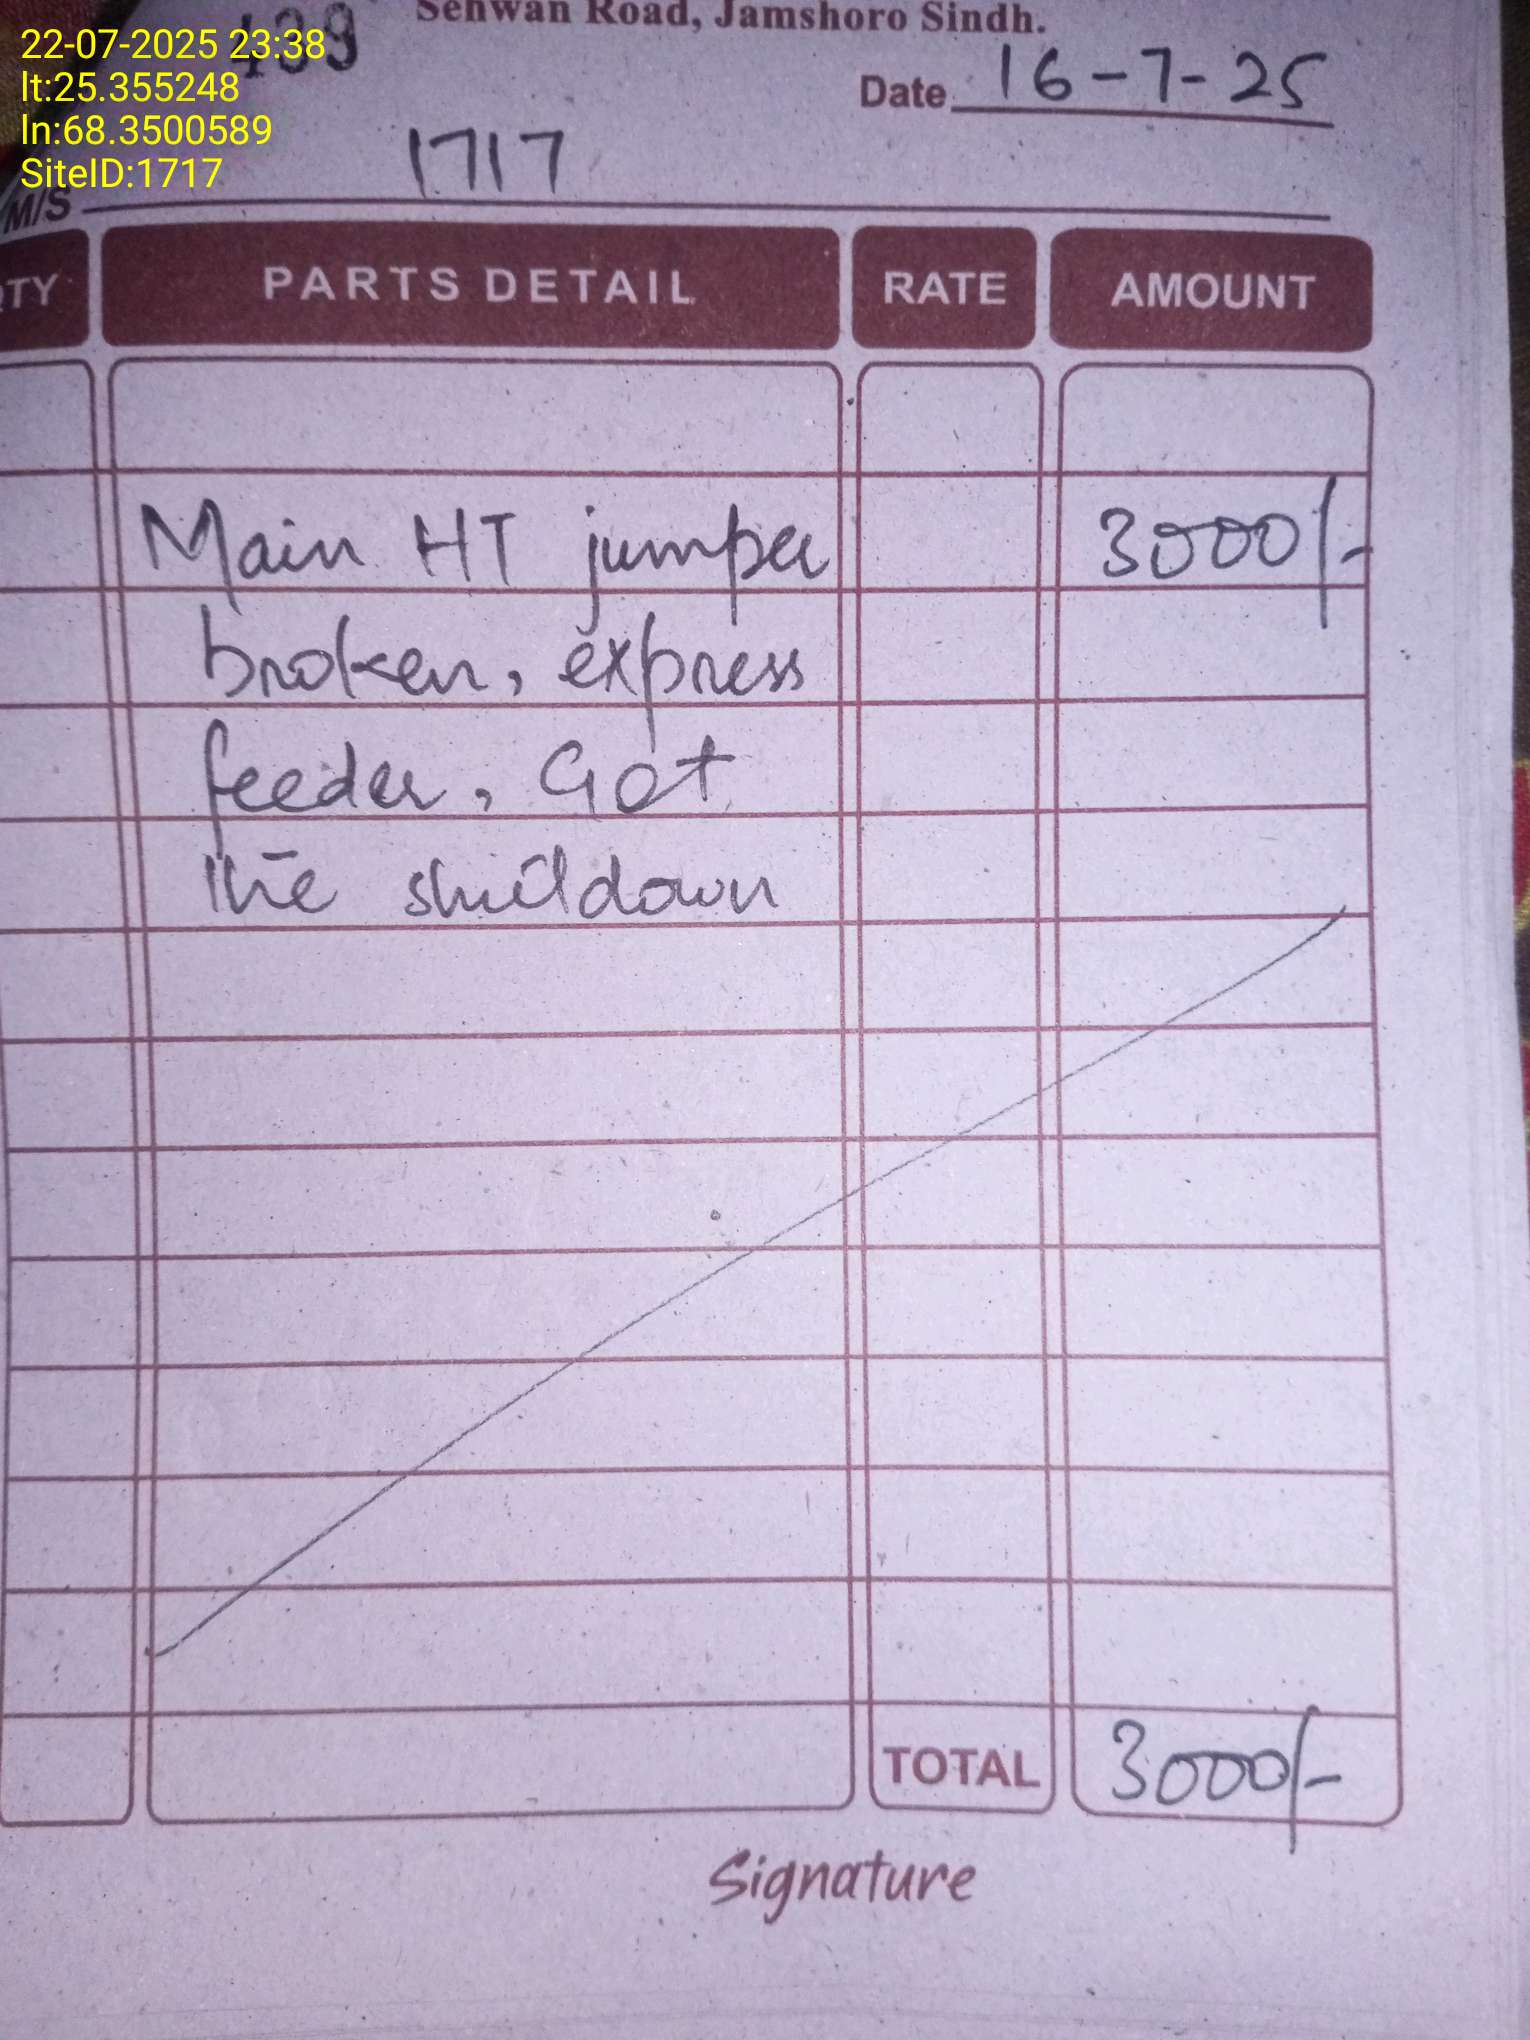 Sehwan Road, Jamshoro Sindh.
22-07-2025 23:38
lt:25.355248
ln:68.3500589
SiteID:1717
439
Date 16-7-25
M/S 1717
QTY PARTS DETAIL RATE AMOUNT
Main HT jumper 3000/-
broken, express
feeder, Got
the shutdown
TOTAL 3000/-
Signature